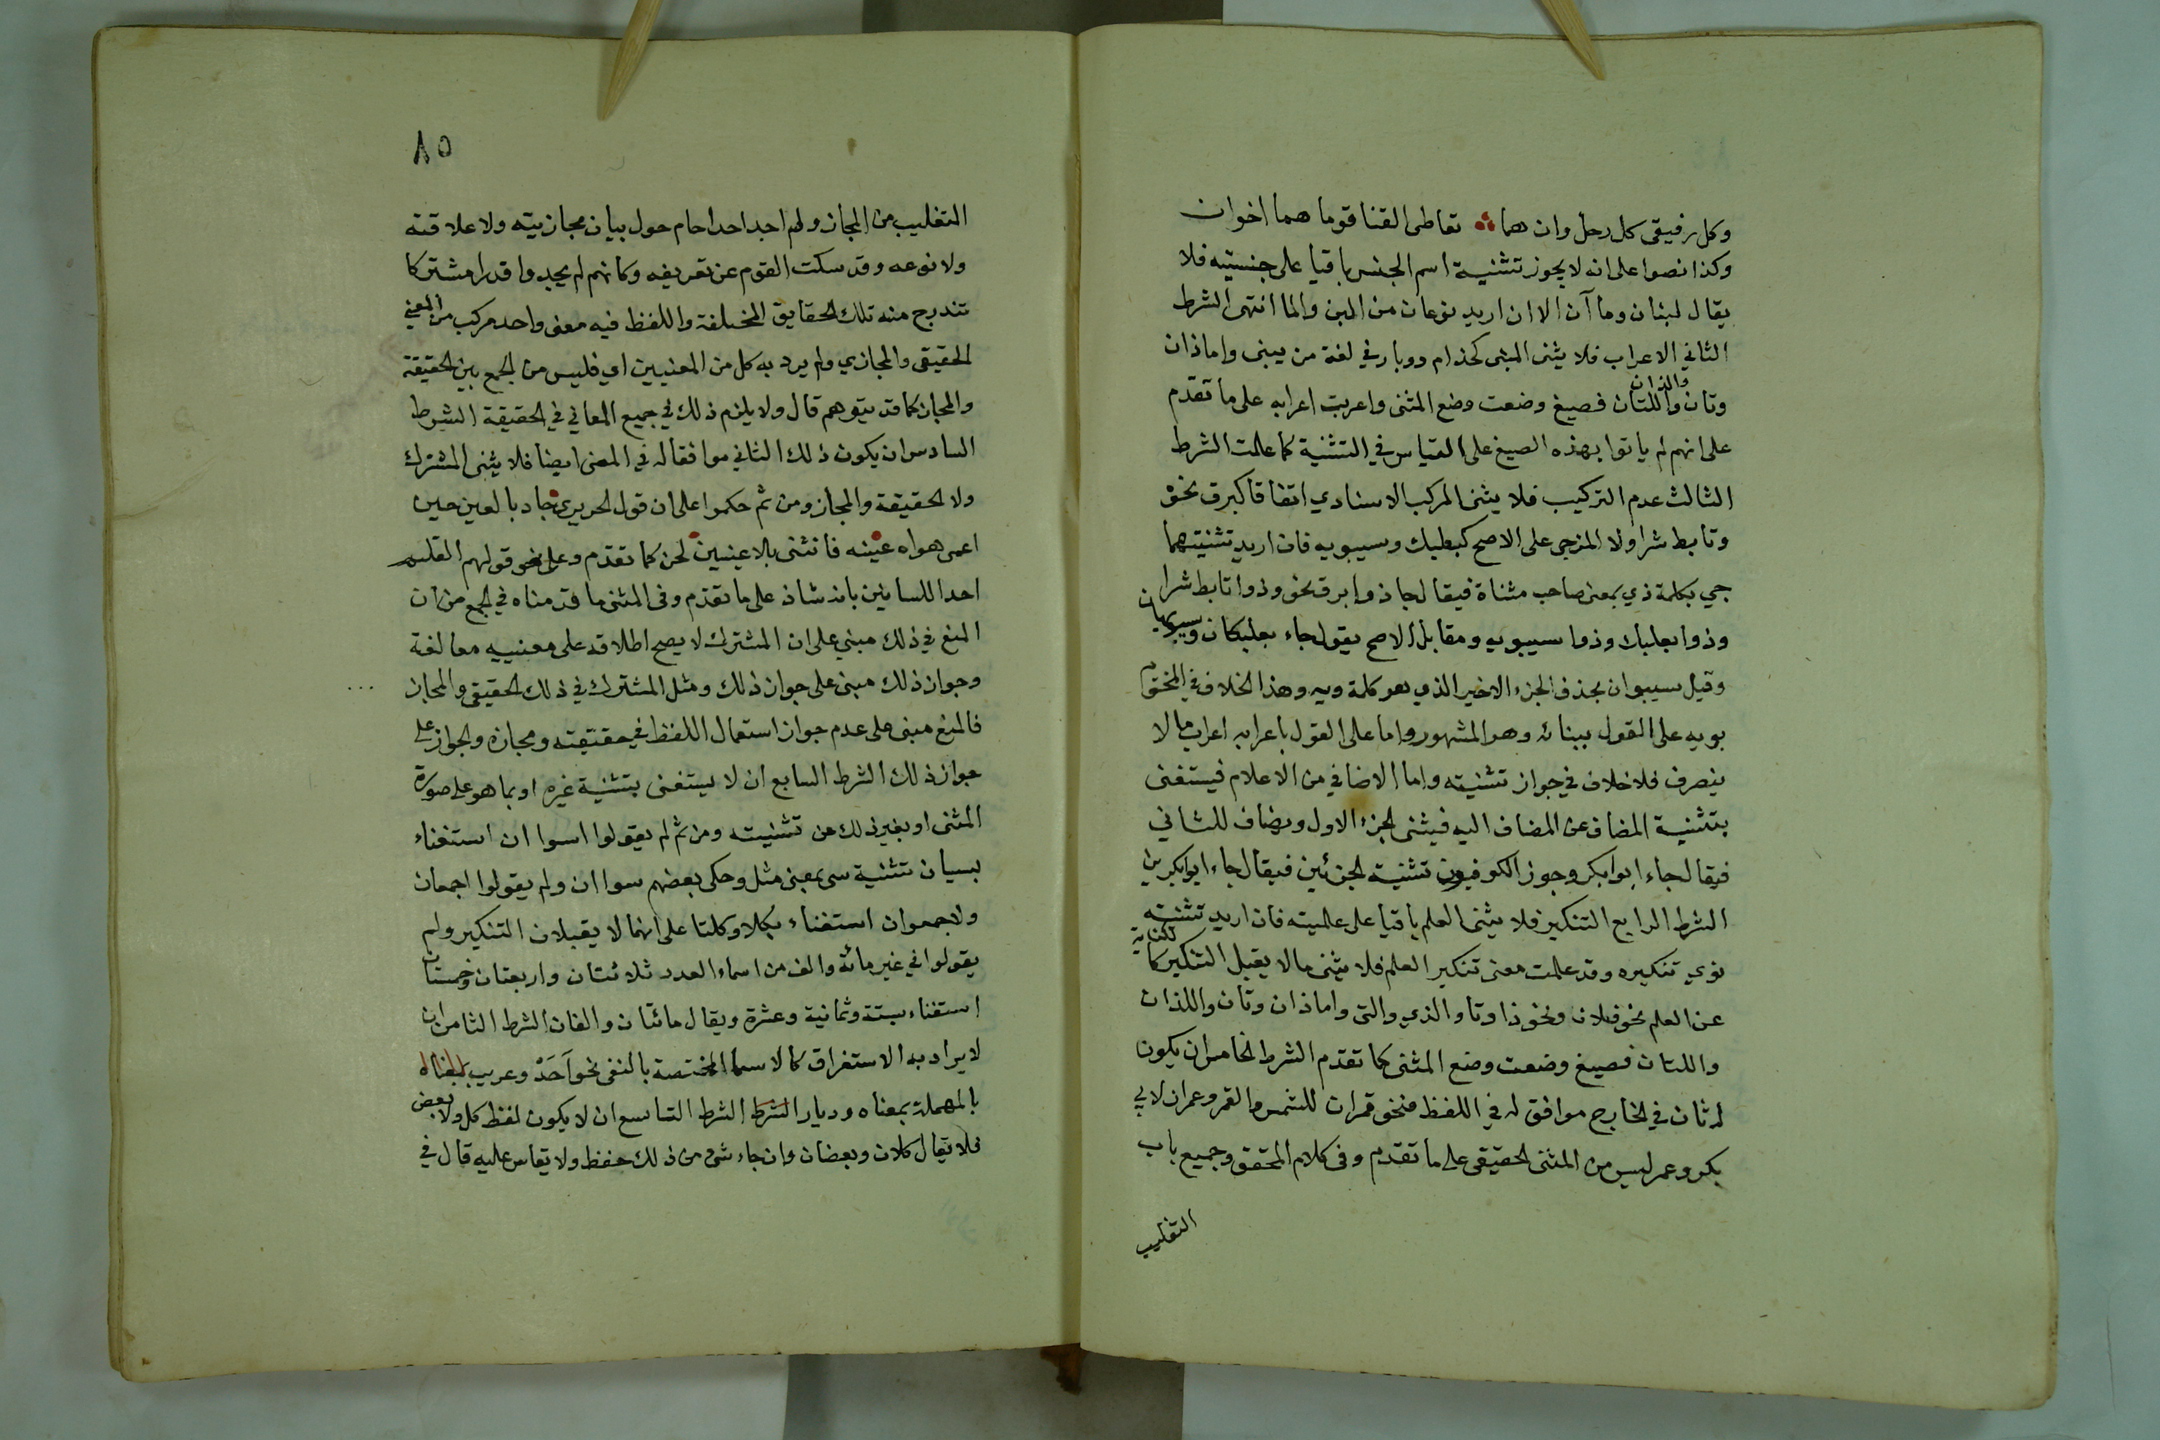 وكل رفيقي كل رحل وان هما تعاطى القنا قوما هما اخوان
وكذا نصوا على انه لا يجوز تثنية اسم الجنس باقيا على جنسيته فلا
يقال لبنان وما آن الا ان اريد نوعان من اللبن والما انتهى الشرط
الثاني الاعراب فلا يثنى المبنى كحذام ووبار في لغة من يبنى واما ذان
وتان واللذان واللتان فصيغ وضعت وضع المثنى واعربت اعرابه على ما تقدم
على انهم لم ياتوا بهذه الصيغ على القياس في التثنية كما علمت الشرط
الثالث عدم التركيب فلا يثنى المركب الاسنادي اتفاقا كبرق نحره
وتابط شرا ولا المزجى على الاصح كبعلبك وسيبويه فان اريد تثنيتهما
جي بكلمة ذي بمعنى صاحب مثناة فيقال جا ذوا برق نحره وذوا تابط شرا
وذوا بعلبك وذوا سيبويه ومقابل الاصح يقول جاء بعلبكان وسيبويهان
وقيل سيبوان بحذف الجزء الاخير الذي هو كلمة ويه وهذا الخلاف في المختوم
بويه على القول ببنائه وهو المشهور واما على القول باعرابه اعراب ما لا
ينصرف فلا خلاف في جواز تثنيته واما الاضافي من الاعلام فيستغنى
بتثنية المضاف عن المضاف اليه فيثنى الجزء الاول ويضاف للثاني
فيقال جاء ابوا بكر وجوز الكوفيون تثنية الجزئين فيقال جاء ابوا بكرين
الشرط الرابع التنكير فلا يثنى العلم باقيا على علميته فان اريد تثنيته
نوي تنكيره وقد علمت معنى تنكير العلم فلا يثنى ما لا يقبل التنكير كالكناية
عن العلم نحو فلان ونحو ذا وتا والذي والتي واما ذان وتان واللذان
واللتان فصيغ وضعت وضع المثنى كما تقدم الشرط الخامس ان يكون
له ثان في الخارج موافق له في اللفظ فنحو قمران للشمس والقمر وعمران لابي
بكر وعمر ليس من المثنى الحقيقي على ما تقدم وفي كلام المحقق وجميع باب
التغليب
٨٥
التغليب من المجاز ولم اجد احدا حام حول بيان مجازيته ولا علاقته
ولا نوعه وقد سكت القوم عن تعريفه وكانهم لم يجدوا قدرا مشتركا
تندرج منه تلك الحقايق المختلفة واللفظ فيه معنى واحد مركب من المعنى
الحقيقى والمجازي ولم يرد به كل من المعنيين اي فليس من الجمع بين الحقيقة
والمجاز كما قد يتوهم قال ولا يلزم ذلك في جميع المعاني في الحقيقة الشرط
السادس ان يكون ذلك الثاني موافقا له في المعنى ايضا فلا يثنى المشترك
ولا الحقيقة والمجاز ومن ثم حكموا على ان قول الحريري جاد بالعين حين
اعمى هواه عينه فانثنى بلا عينين لحن كما تقدم وعلى نحو قولهم القلم
احد اللسانين بانه شاذ على ما تقدم وفى المثنى ما قدمناه في الجمع من ان
المنع في ذلك مبني على ان المشترك لا يصح اطلاقه على معنييه معا لغة
وجواز ذلك مبنى على جواز ذلك ومثل المشترك في ذلك الحقيقى والمجاز
فالمنع مبنى على عدم جواز استعمال اللفظ في حقيقته ومجازه والجواز على
جواز ذلك الشرط السابع ان لا يستغنى بتثنية غيره او بما هو على صورة
المثنى او بغير ذلك من تثنيته ومن ثم لم يقولوا اسوا ان استغناء
بسيان تثنية سى بمعنى مثل وحكى بعضهم سوا ان ولم يقولوا اجمعان
ولا جمعوان استغناء بكلا وكلتا على انهما لا يقبلان التنكير ولم
يقولوا في غير مائة والف من اسماء العدد ثلاثتان واربعتان وخمستان
استغناء بستة وثمانية وعشرة ويقال مائتان والفان الشرط الثامن ان
لا يراد به الاستغراق كالاسما المختصة بالنفى نحو اَحَدْ وعريب
بالمهملة بمعناه وديار الشرط الشرط التاسع ان لا يكون لفظ كل ولا بعض
فلا يقال كلان وبعضان وان جاء شىء من ذلك حفظ ولا يقاس عليه قال في